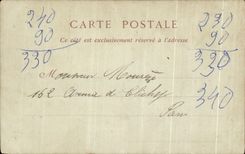 CARTE POSTALE
Ce côté est exclusivement réservé à l'adresse
240
90
330
230
90
330
340
Monsieur
162 Avenue de Clichy
Paris